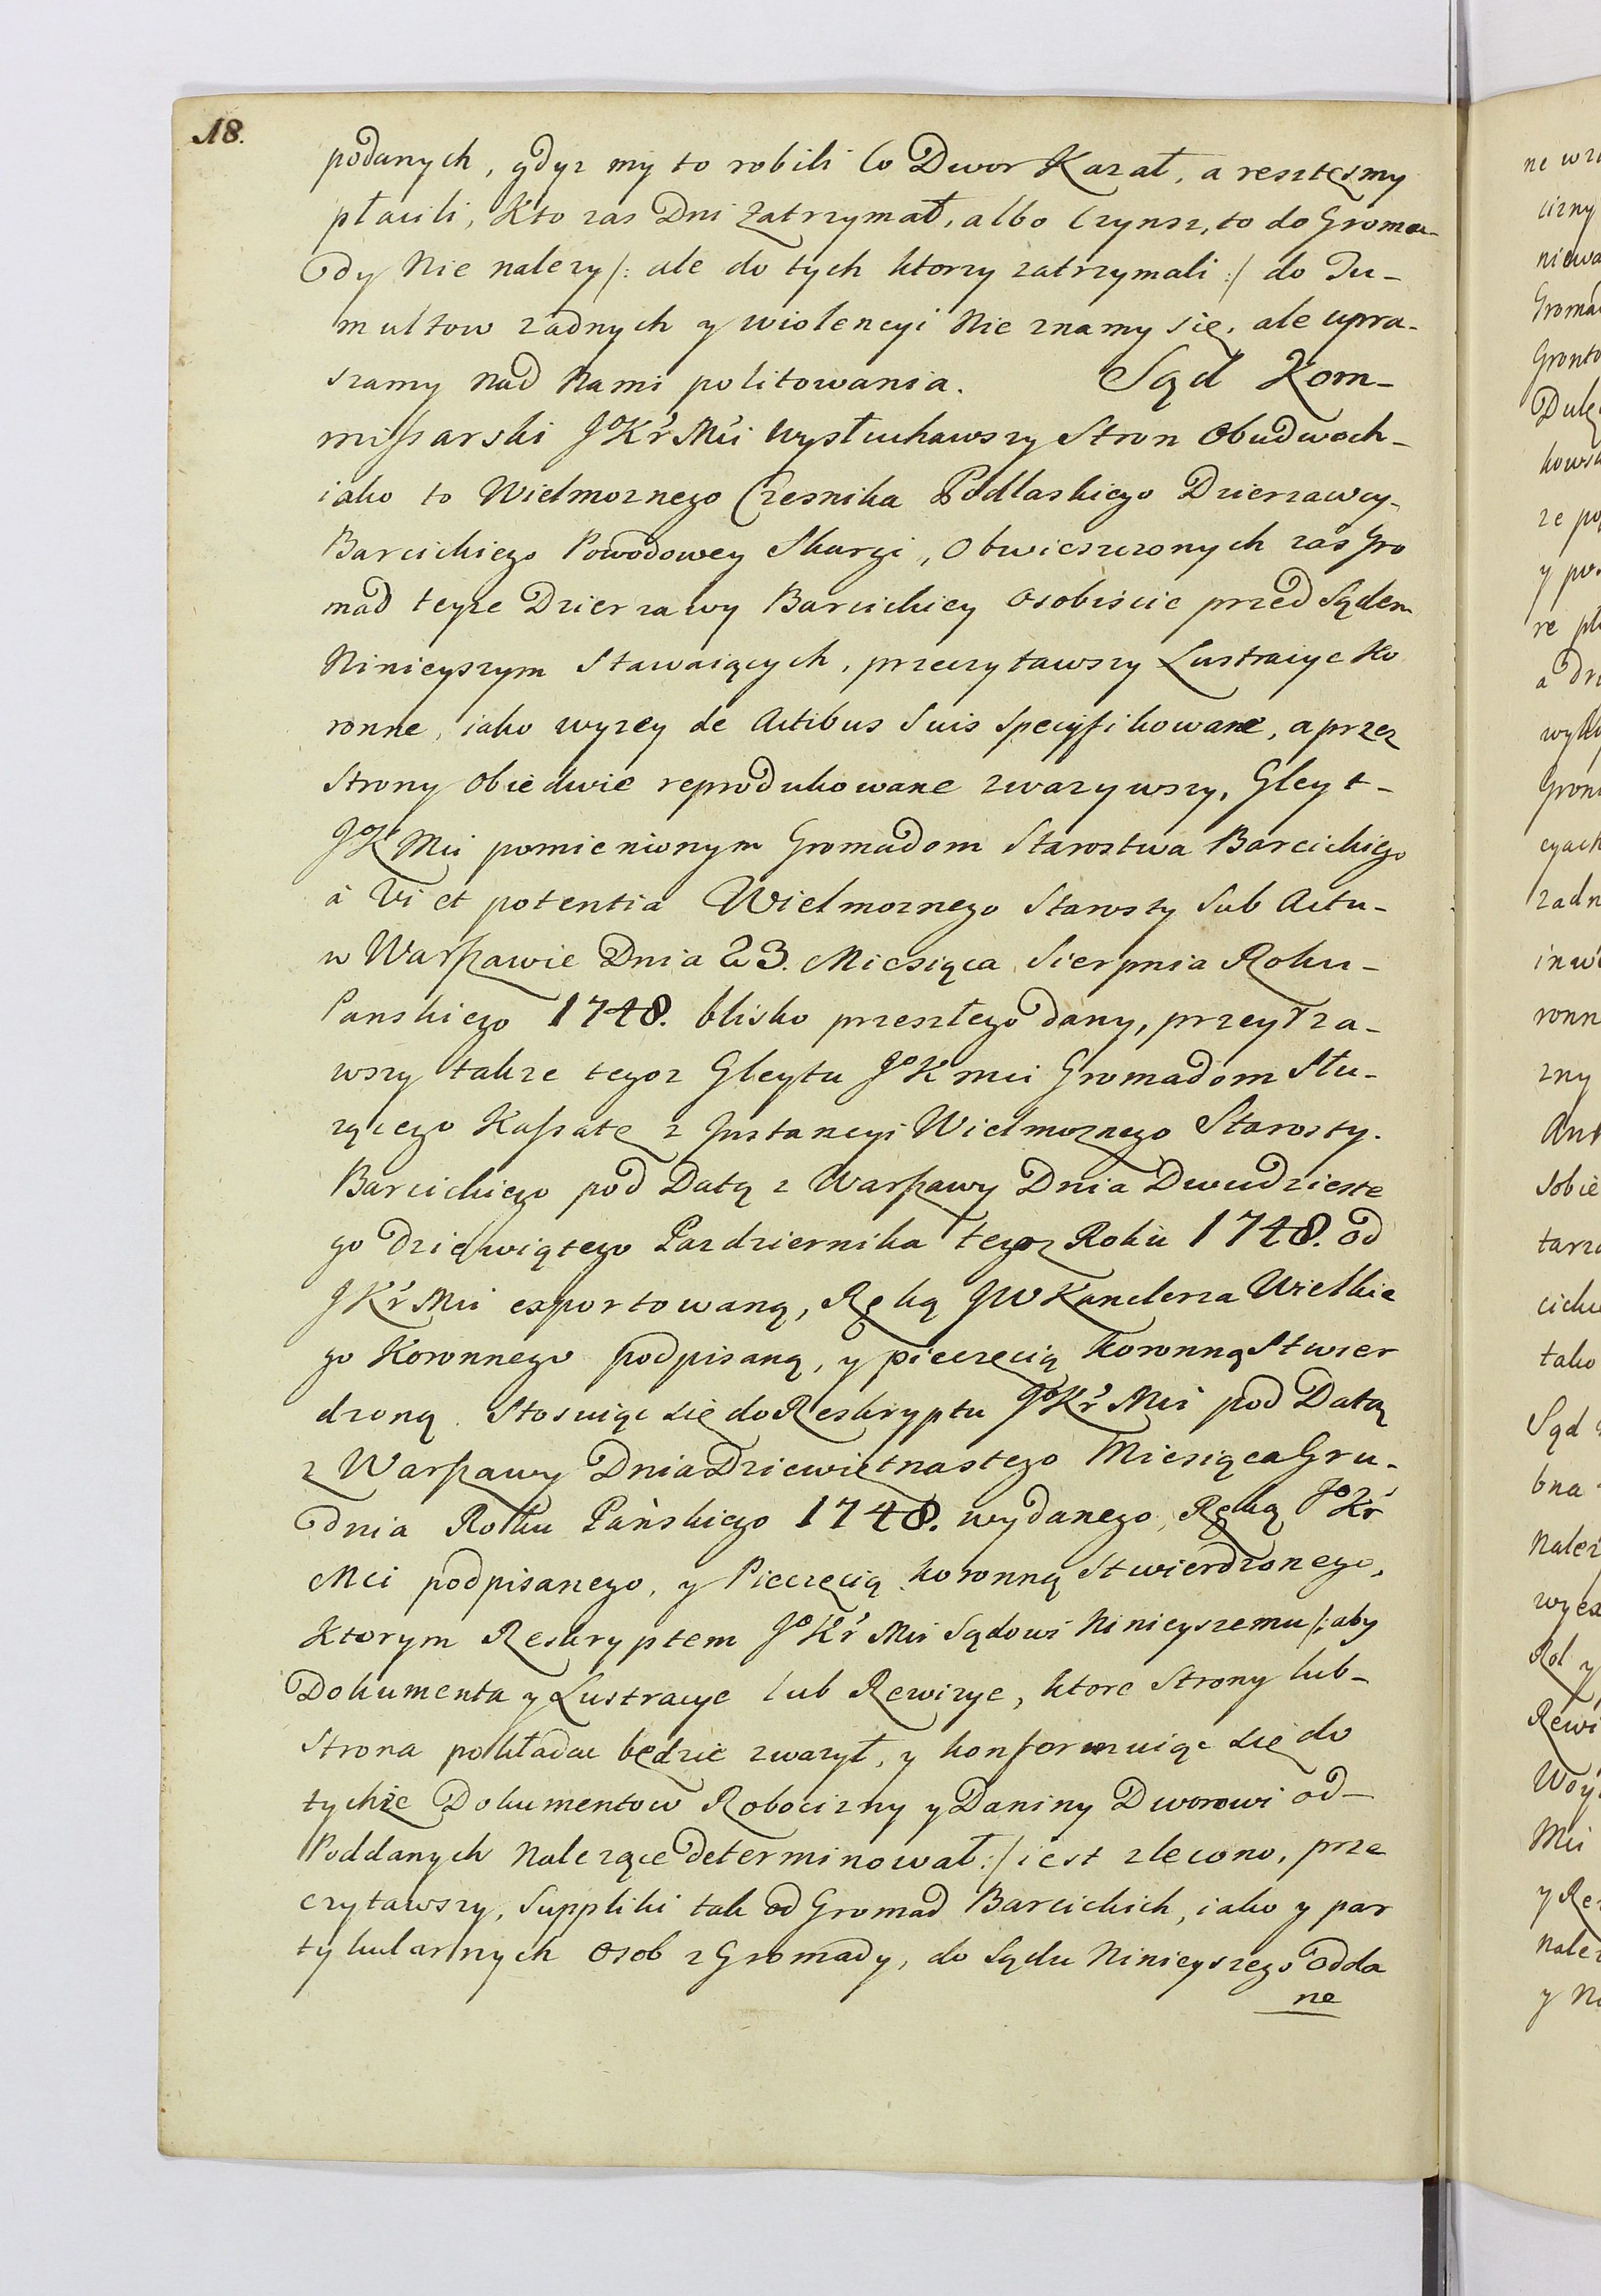 18.
podanych, gdyz my to robili Co Dwor Kazał, a resztęsmy
płacili, Kto zas Dni zatrzymał, albo Czynsz, to do Groma-
dy Nie nalezy /: ale do tych ktorzy zatrzymali :/ do Tu-
multow zadnych y wiolencyi Nie znamy się, ale upra-
szamy nad Nami politowania. Sąd Kom-
missarski JoKr Mci Wysłuchawszy Stron Obudwoch-
iako to Wielmoznego Czesnika Podlaskiego Dzierzawcy-
Barcickiego Powodowey Skargi, Obwieszczonych zaś Gro
mad teyze Dzierzawy Barcickiey Osobiscie przed Sądem
Ninieyszym Stawaiących, przeczytawszy Lustracye Ko
ronne, iako wyzey de Actibus Suis Specyfikowane, a przez
Strony Obiedwie reprodukowane zwazywszy, Gleyt-
JoK Mci pomienionym Gromadom Starostwa Barcickiego
à Vi et potentia Wielmoznego Starosty Sub Actu-
w Warszawie Dnia 23. Miesiąca Sierpnia Roku-
Panskiego 1748. blisko przeszłego dany, przeyrza-
wszy takze tegoz Gleytu JoK mci Gromadom Słu-
zącego Kassatę z Jnstancyi Wielmoznego Starosty.
Barcickiego pod Datą z Warszawy Dnia Dwudzieste
go dziewiątego Pazdziernika tegoz Roku 1748. od
JKr Mci exportowaną, Ręką JW Kanclerza Wielkie
go Koronnego podpisaną, y pieczęcią Koronną Stwier
dzoną. Stosuiąc się do Reskryptu JoKr Mci pod Datą
z Warszawy Dnia Dziewiętnastego Miesiąca Gru-
dnia Roku Pańskiego 1748. wydanego, Ręką JoKr
Mci podpisanego, y Pieczęcią Koronną Stwierdzonego,
Ktorym Reskryptem JoKr Mci Sądowi Ninieyszemu /: aby
Dokumenta y Lustracye lub Rewizye, ktore Strony lub-
Strona pokładac będzie zwazył, y konformuiąc się do
tychże Dokumentow Robocizny y Daniny Dworowi od-
Poddanych Nalezące determinował :/ iest zlecono, prze
czytawszy, Suppliki tak od Gromad Barcickich, iako y par
tykularnych Osob z Gromady, do Sądu Ninieyszego odda
ne